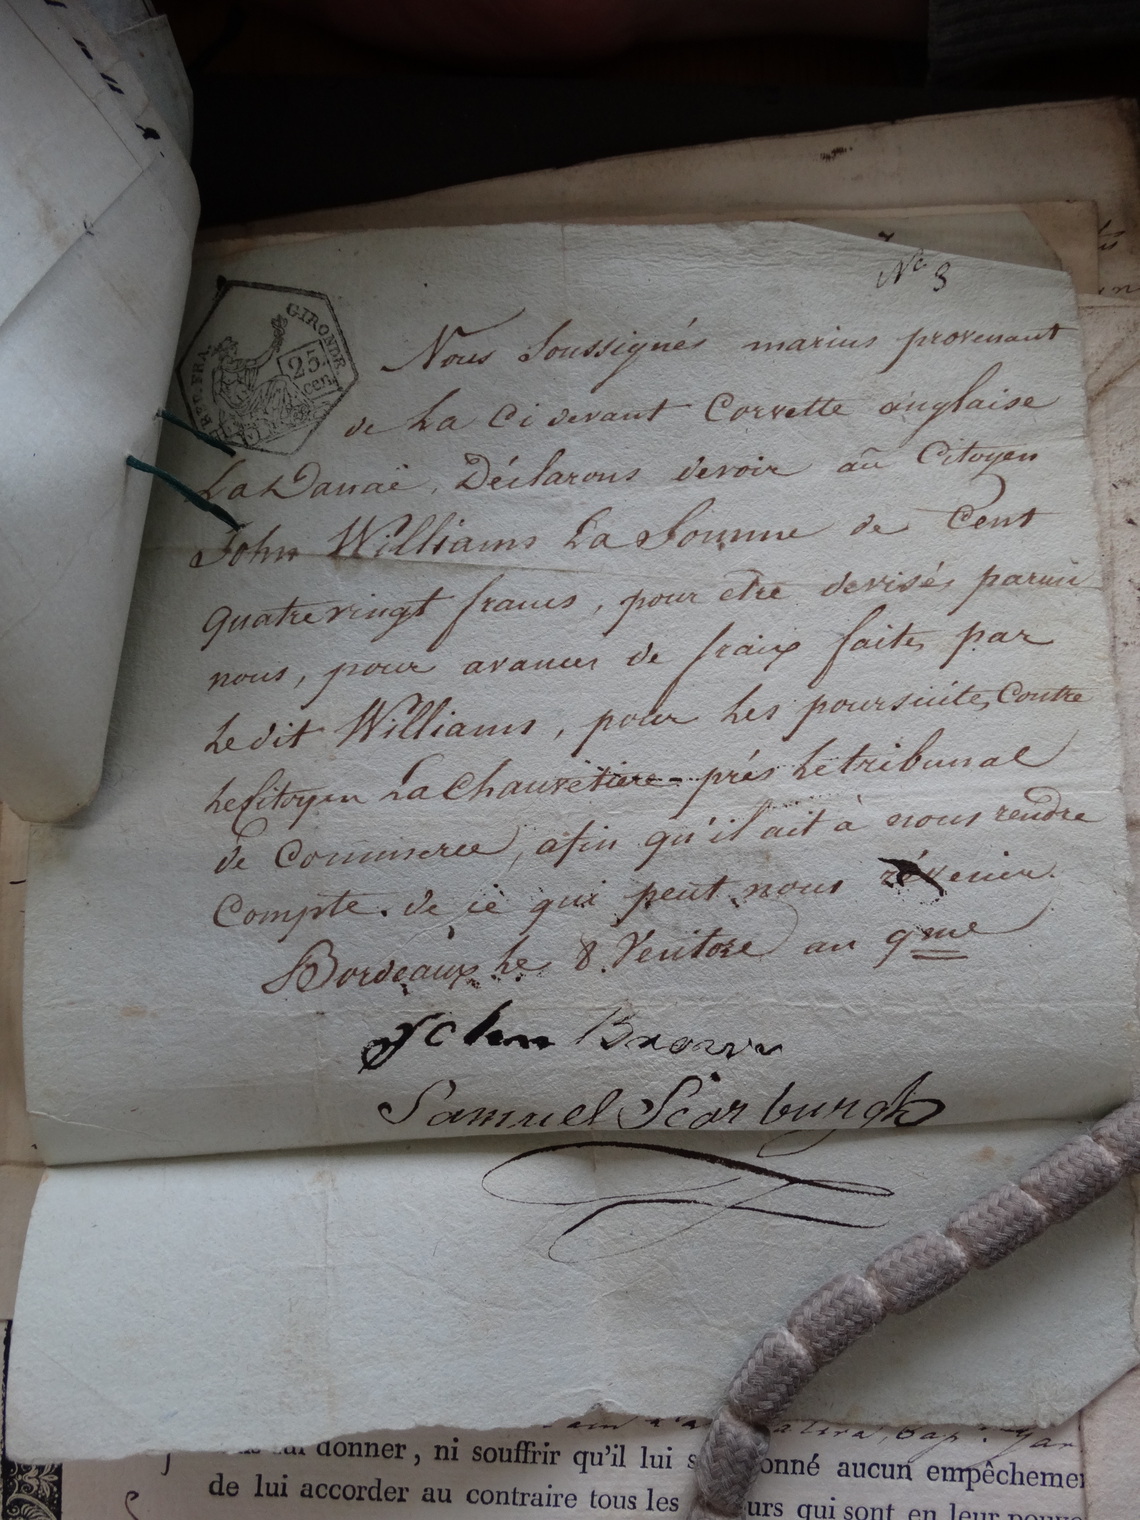 Nº 3
GIRONDE
REP. FRA.
25
cen.
Nous Soussignés marins provenant
de La Ci devant Corvette anglaise
La Danaë, Déclarons devoir au Citoyen
John Williams La Somme de Cent
quatre vingt francs, pour etre devisés parmi
nous, pour avances de fraix faites par
Le dit Williams, pour Les poursuites Contre
Le Citoyen La Chauvetiere - près Le tribunal
de Commerce, afin qu'il ait à nous rendre
Compte de ce qui peut nous révenir.
Bordeaux Le 8 Ventose an 9me
John Brown
Samuel Scarburgh
donner, ni souffrir qu'il lui aucun empêchemen
de lui accorder au contraire tous les qui sont en leur pouvo